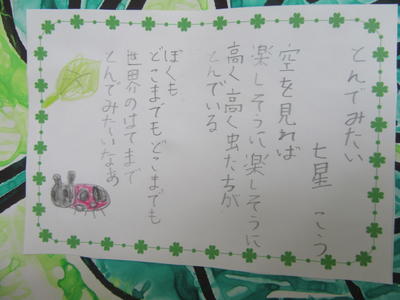 とんでみたい
七星 こう
空を見れば
楽しそうに楽しそうに
高く高く虫たちが
とんでいる
ぼくも
どこまでもどこまでも
世界のはてまで
とんでみたいなあ